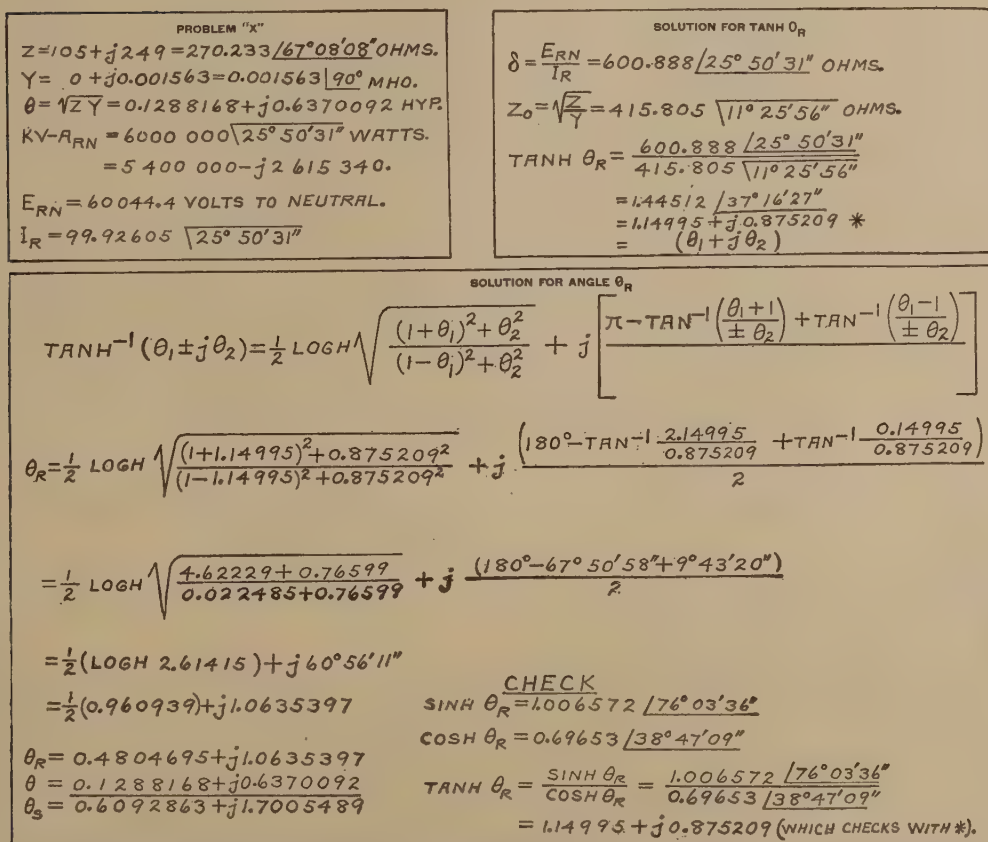 PROBLEM "X"
Z=105+j249=270.233/67°08'08" OHMS.
Y= 0+j0.001563=0.001563|90° MHO.
θ=√ZY=0.1288168+j0.6370092 HYP.
KV-A_RN=6000 000\25°50'31" WATTS.
=5 400 000-j2 615 340.
E_RN=60044.4 VOLTS TO NEUTRAL.
I_R=99.92605 \25°50'31"
SOLUTION FOR TANH θ_R
δ=E_RN/I_R=600.888/25°50'31" OHMS.
Z₀=√Z/Y=415.805 \11°25'56" OHMS.
TANH θ_R= 600.888 /25°50'31" / 415.805 \11°25'56"
=1.44512 /37°16'27"
=1.14995+j0.875209 *
= (θ₁+jθ₂)
SOLUTION FOR ANGLE θ_R
TANH⁻¹(θ₁±jθ₂)=½ LOGH √((1+θ₁)²+θ₂²)/((1-θ₁)²+θ₂²) + j[π-TAN⁻¹((θ₁+1)/(± θ₂))+TAN⁻¹((θ₁-1)/(± θ₂))]
θ_R=½ LOGH √((1+1.14995)²+0.875209²)/((1-1.14995)²+0.875209²) + j (180°-TAN⁻¹ 2.14995/0.875209 +TAN⁻¹ 0.14995/0.875209)/2
=½ LOGH √(4.62229+0.76599)/(0.022485+0.76599) + j (180°-67°50'58"+9°43'20")/2
=½(LOGH 2.61415)+j60°56'11"
=½(0.960939)+j1.0635397
θ_R= 0.4804695+j1.0635397
θ = 0.1288168+j0.6370092
θ_S= 0.6092863+j1.7005489
CHECK
SINH θ_R=1.006572 /76°03'36"
COSH θ_R=0.69653 /38°47'09"
TANH θ_R = SINH θ_R/COSH θ_R = 1.006572 /76°03'36" / 0.69653 /38°47'09"
= 1.14995+j0.875209 (WHICH CHECKS WITH *).